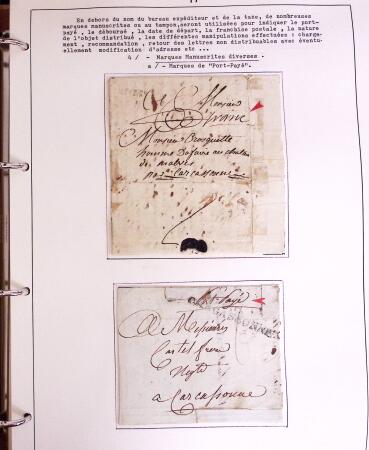 En dehors du nom du bureau expéditeur et de la taxe, de nombreuses
marques manuscrites ou au tampon,seront utilisées pour indiquer le port-
payé, le déboursé , la date de départ, la franchise postale , la nature
de l'objet distribué , les différentes manipulations effectuées : charge-
ment , recommandation , retour des lettres non distribuables avec éventu-
ellement modification d'adresse etc ...
4 / - Marques Manuscrites diverses .
a / - Marques de "Port-Payé".
A Monsieur
franc
Monsieur
homme Daffaire au chateau
de malves
Carcassonne
Port Payé
CARCASSONNE
A Messieurs
Castel frere
Negts
a Carcassonne